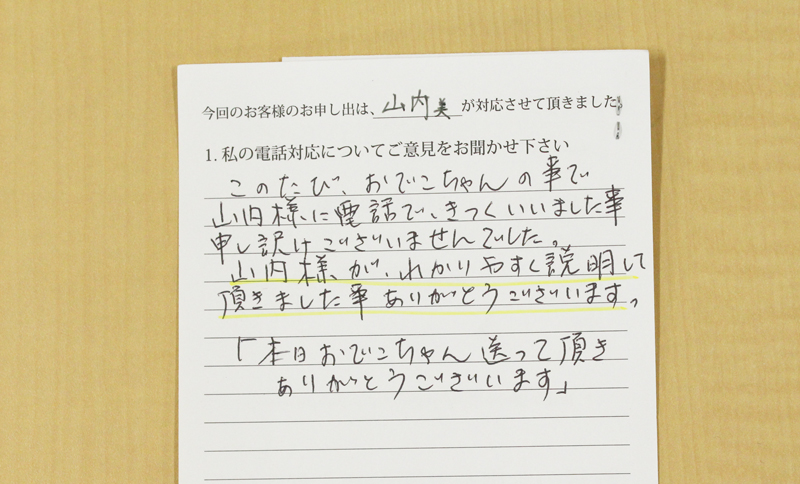 今回のお客様のお申し出は、山内美が対応させて頂きました
1. 私の電話対応についてご意見をお聞かせ下さい
このたび、おでこちゃんの事で
山内様に電話で、きつくいいました事
申し訳けございませんでした。
山内様が、わかりやすく説明して
頂きました事ありがとうございます。
「本日おでこちゃん送って頂き
ありがとうございます」